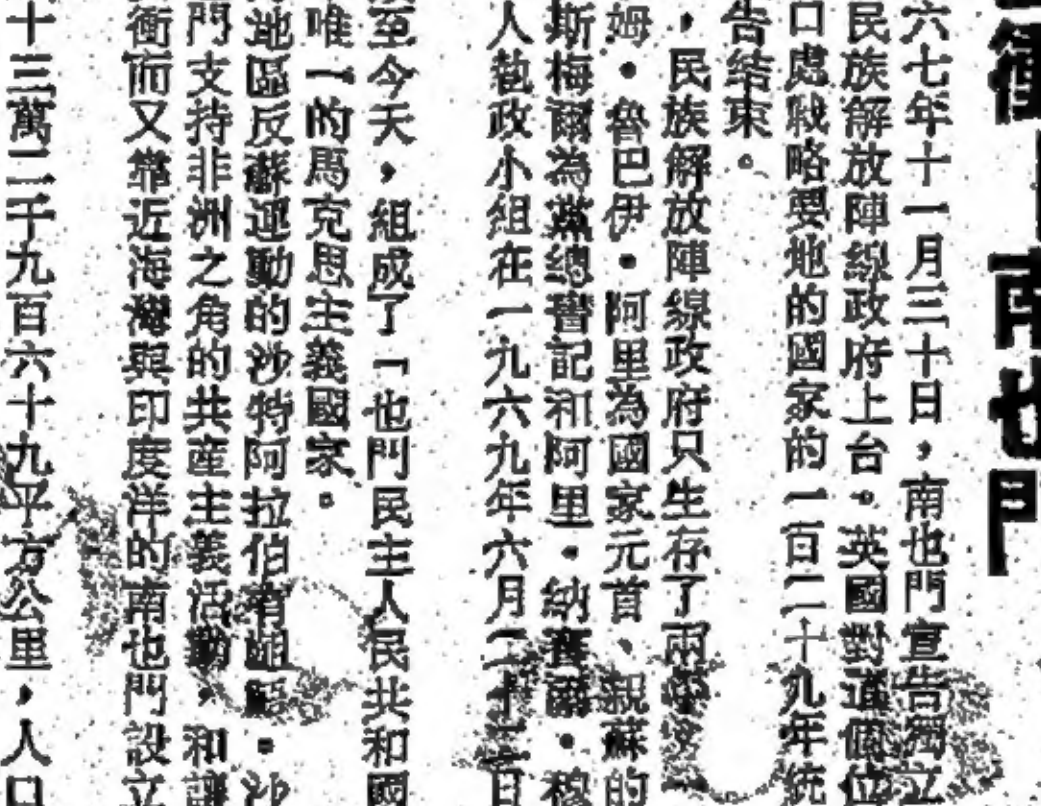 南也門
六七年十一月三十日，南也門宣告獨立
民族解放陣線政府上台。英國對這個位
口處戰略要地的國家的一百二十九年統
告結束。
，民族解放陣線政府只生存了兩
姆·魯巴伊·阿里為國家元首、親蘇的
斯梅爾為黨總書記和阿里·納賽爾·穆
人執政小組在一九六九年六月二十二日
至今天，組成了「也門民主人民共和國
唯一的馬克思主義國家。
地區反蘇運動的沙特阿拉伯有。沙
門支持非洲之角的共產主義活動，和
衝而又靠近海灣與印度洋的南也門設立
十三萬二千九百六十九平方公里，人口